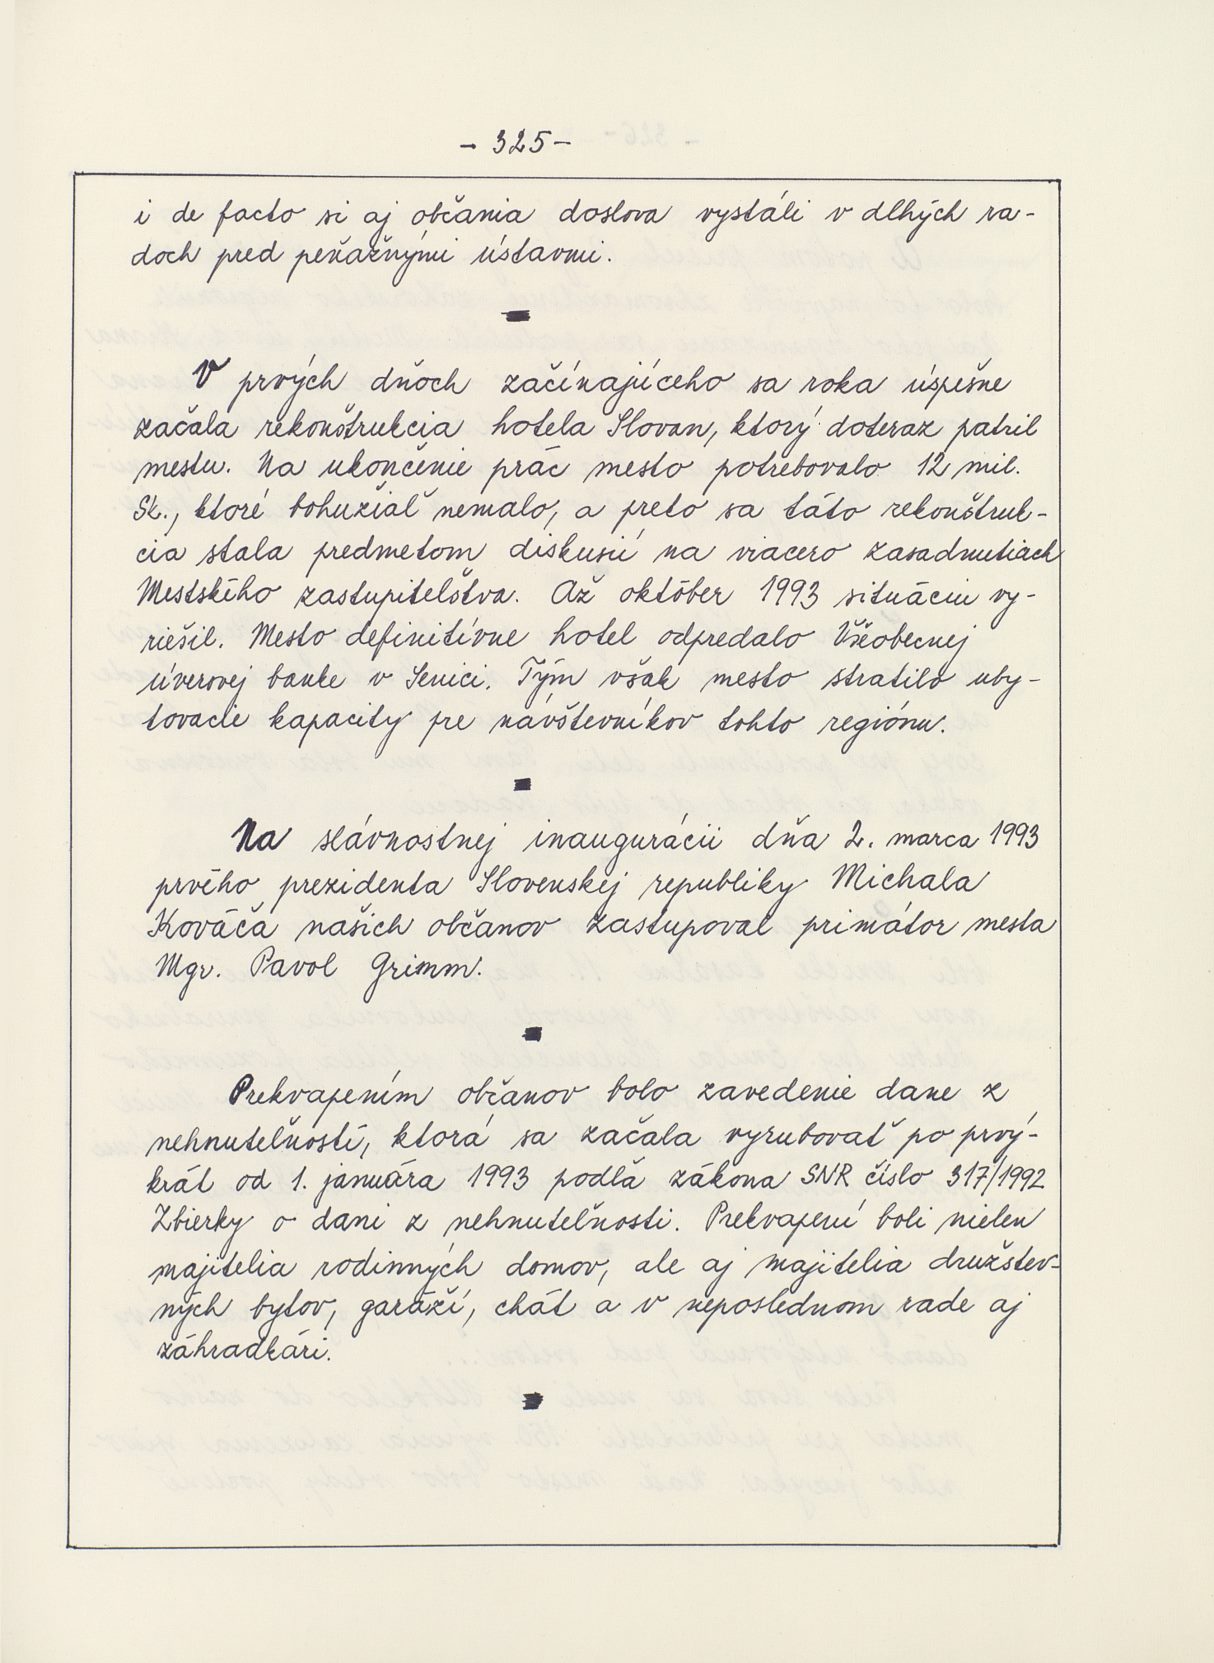 - 325 -
i de facto si aj občania doslova vystáli v dlhých ra-
doch pred peňažnými ústavmi.
V prvých dňoch začínajúceho sa roka úspešne
začala rekonštrukcia hotela Slovan, ktorý doteraz patril
mestu. Na ukončenie prác mesto potrebovalo 12 mil.
Sk., ktoré bohužiaľ nemalo, a preto sa táto rekonštruk-
cia stala predmetom diskusií na viacero zasadnutiach
Mestského zastupiteľstva. Až október 1993 situáciu vy-
riešil. Mesto definitívne hotel odpredalo Všeobecnej
úverovej banke v Senici. Tým však mesto stratilo uby-
tovacie kapacity pre návštevníkov tohto regiónu.
Na slávnostnej inaugurácii dňa 2. marca 1993
prvého prezidenta Slovenskej republiky Michala
Kováča našich občanov zastupoval primátor mesta
Mgr. Pavol Grimm.
Prekvapením občanov bolo zavedenie dane z
nehnuteľností, ktorá sa začala vyrubovať po prvý-
krát od 1. januára 1993 podľa zákona SNR číslo 317/1992
Zbierky o dani z nehnuteľnosti. Prekvapení boli nielen
majitelia rodinných domov, ale aj majitelia družstev-
ných bytov, garáží, chát a v neposlednom rade aj
záhradkári.